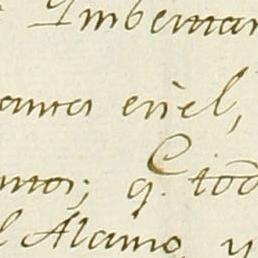 Ymbernan
ama en el,
mos; q. tod
l Alamo, y